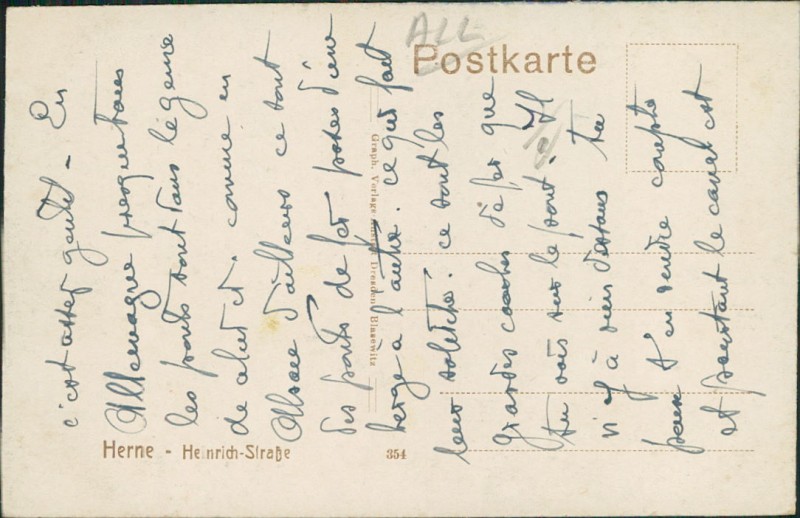 ALL
Postkarte
c'est assez gentil - En
Allemagne presque tous
les ponts sont dans le genre
de celui ci. comme en
Alsace d'ailleurs ce sont
des ponts de fer posés d'une
berge à l'autre. ce qui fait
leur solidité. ce sont les
grandes arches de fer que
tu vois sur le pont. Il
n'y a rien dessous tu
peux t'en rendre compte
et pourtant le canal est
Graph. Verlags-Anstalt Dresden Blasewitz
Herne - Heinrich-Straße
354